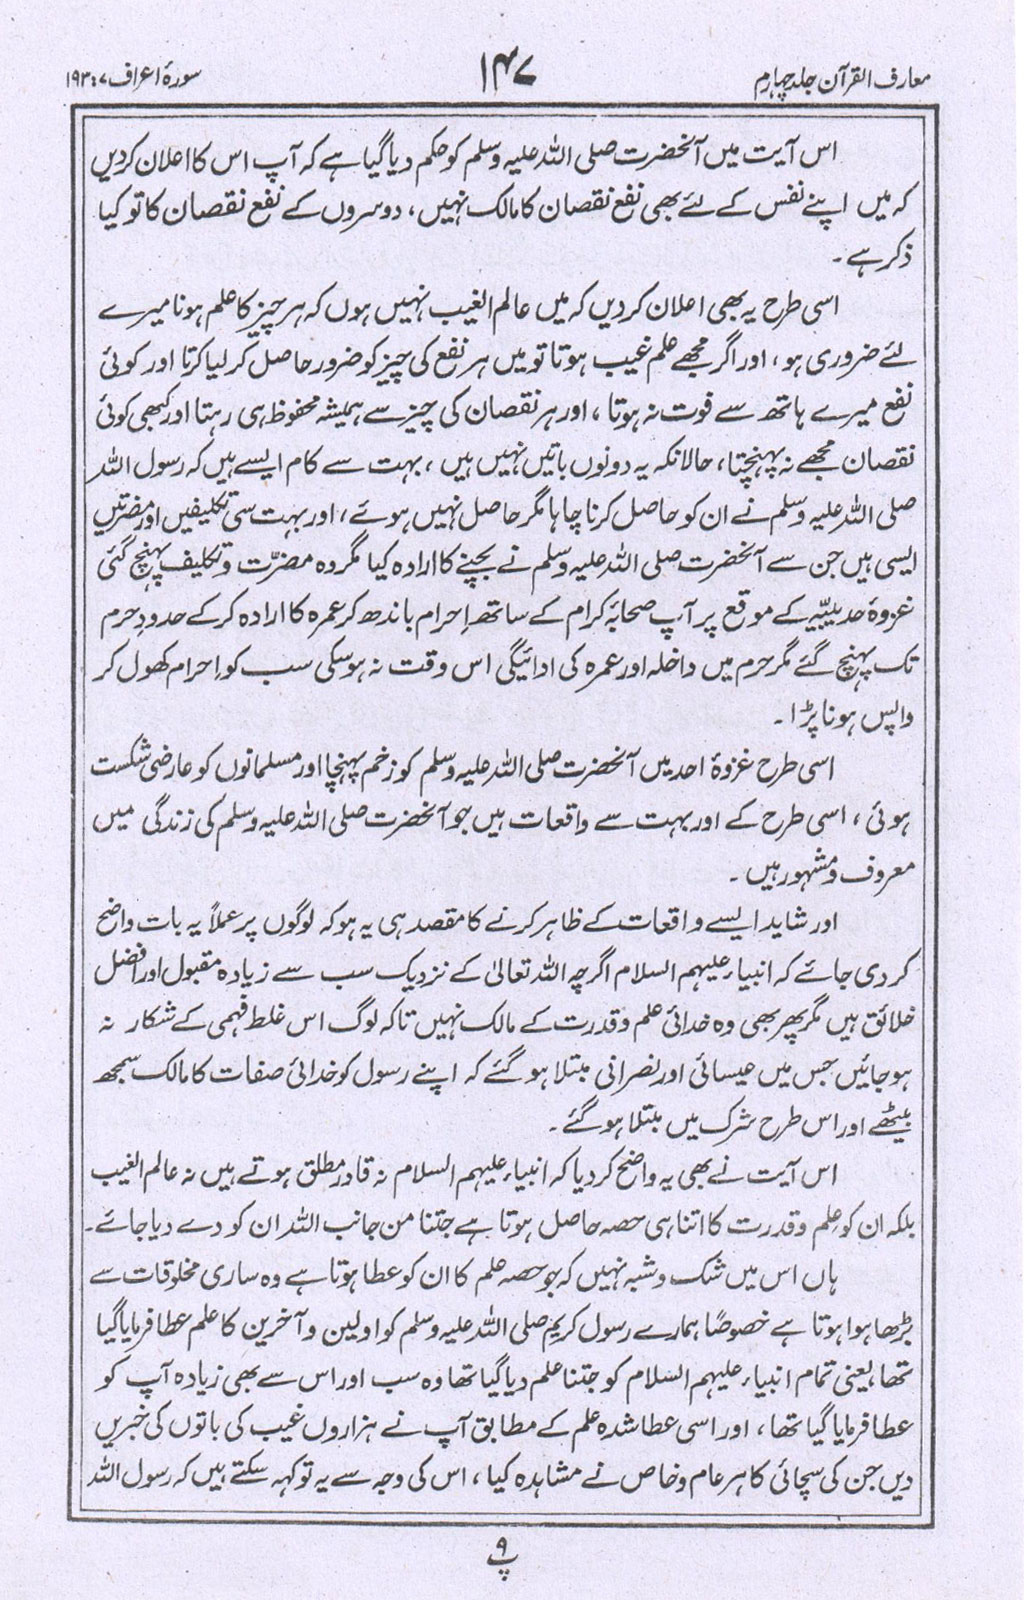 معارف القرآن جلد چہارم
۱۴۷
سورۂ اعراف ۷ : ۱۹۳
اس آیت میں آنحضرت صلی اللہ علیہ وسلم کو حکم دیا گیا ہے کہ آپ اس کا اعلان کردیں
کہ میں اپنے نفس کے لئے بھی نفع نقصان کا مالک نہیں، دوسروں کے نفع نقصان کا تو کیا
ذکر ہے۔
اسی طرح یہ بھی اعلان کردیں کہ میں عالم الغیب نہیں ہوں کہ ہر چیز کا علم ہونا میرے
لئے ضروری ہو، اور اگر مجھے علم غیب ہوتا تو میں ہر نفع کی چیز کو ضرور حاصل کر لیا کرتا اور کوئی
نفع میرے ہاتھ سے فوت نہ ہوتا، اور ہر نقصان کی چیز سے ہمیشہ محفوظ ہی رہتا اور کبھی کوئی
نقصان مجھے نہ پہنچتا، حالانکہ یہ دونوں باتیں نہیں ہیں، بہت سے کام ایسے ہیں کہ رسول اللہ
صلی اللہ علیہ وسلم نے ان کو حاصل کرنا چاہا مگر حاصل نہیں ہوئے، اور بہت سی تکلیفیں اور مضرتیں
ایسی ہیں جن سے آنحضرت صلی اللہ علیہ وسلم نے بچنے کا ارادہ کیا مگر وہ مضرّت و تکلیف پہنچ گئی
غزوۂ حدیبیّہ کے موقع پر آپ صحابہ کرام کے ساتھ اِحرام باندھ کر عمرہ کا ارادہ کرکے حدودِ حرم
تک پہنچ گئے مگر حرم میں داخلہ اور عمرہ کی ادائیگی اس وقت نہ ہوسکی سب کو اِحرام کھول کر
واپس ہونا پڑا۔
اسی طرح غزوۂ احد میں آنحضرت صلی اللہ علیہ وسلم کو زخم پہنچا اور مسلمانوں کو عارضی شکست
ہوئی، اسی طرح کے اور بہت سے واقعات ہیں جو آنحضرت صلی اللہ علیہ وسلم کی زندگی میں
معروف و مشہور ہیں۔
اور شاید ایسے واقعات کے ظاہر کرنے کا مقصد ہی یہ ہو کہ لوگوں پر عملاً یہ بات واضح
کر دی جائے کہ انبیاء علیہم السلام اگرچہ اللہ تعالیٰ کے نزدیک سب سے زیادہ مقبول اور افضل
خلائق ہیں مگر پھر بھی وہ خدائی علم و قدرت کے مالک نہیں تاکہ لوگ اس غلط فہمی کے شکار نہ
ہوجائیں جس میں عیسائی اور نصرانی مبتلا ہو گئے کہ اپنے رسول کو خدائی صفات کا مالک سمجھ
بیٹھے اور اس طرح شرک میں مبتلا ہو گئے۔
اس آیت نے بھی یہ واضح کردیا کہ انبیاء علیہم السلام نہ قادر مطلق ہوتے ہیں نہ عالم الغیب
بلکہ ان کو علم و قدرت کا اتنا ہی حصہ حاصل ہوتا ہے جتنا من جانب اللہ ان کو دے دیا جائے۔
ہاں اس میں شک و شبہ نہیں کہ جو حصہ علم کا ان کو عطا ہوتا ہے وہ ساری مخلوقات سے
بڑھا ہوا ہوتا ہے خصوصًا ہمارے رسول کریم صلی اللہ علیہ وسلم کو اولین و آخرین کا علم عطا فرمایا گیا
تھا، یعنی تمام انبیاء علیہم السلام کو جتنا علم دیا گیا تھا وہ سب اور اس سے بھی زیادہ آپ کو
عطا فرمایا گیا تھا، اور اسی عطا شدہ علم کے مطابق آپ نے ہزاروں غیب کی باتوں کی خبریں
دیں جن کی سچائی کا ہر عام و خاص نے مشاہدہ کیا، اس کی وجہ سے یہ تو کہہ سکتے ہیں کہ رسول اللہ
۹
پ